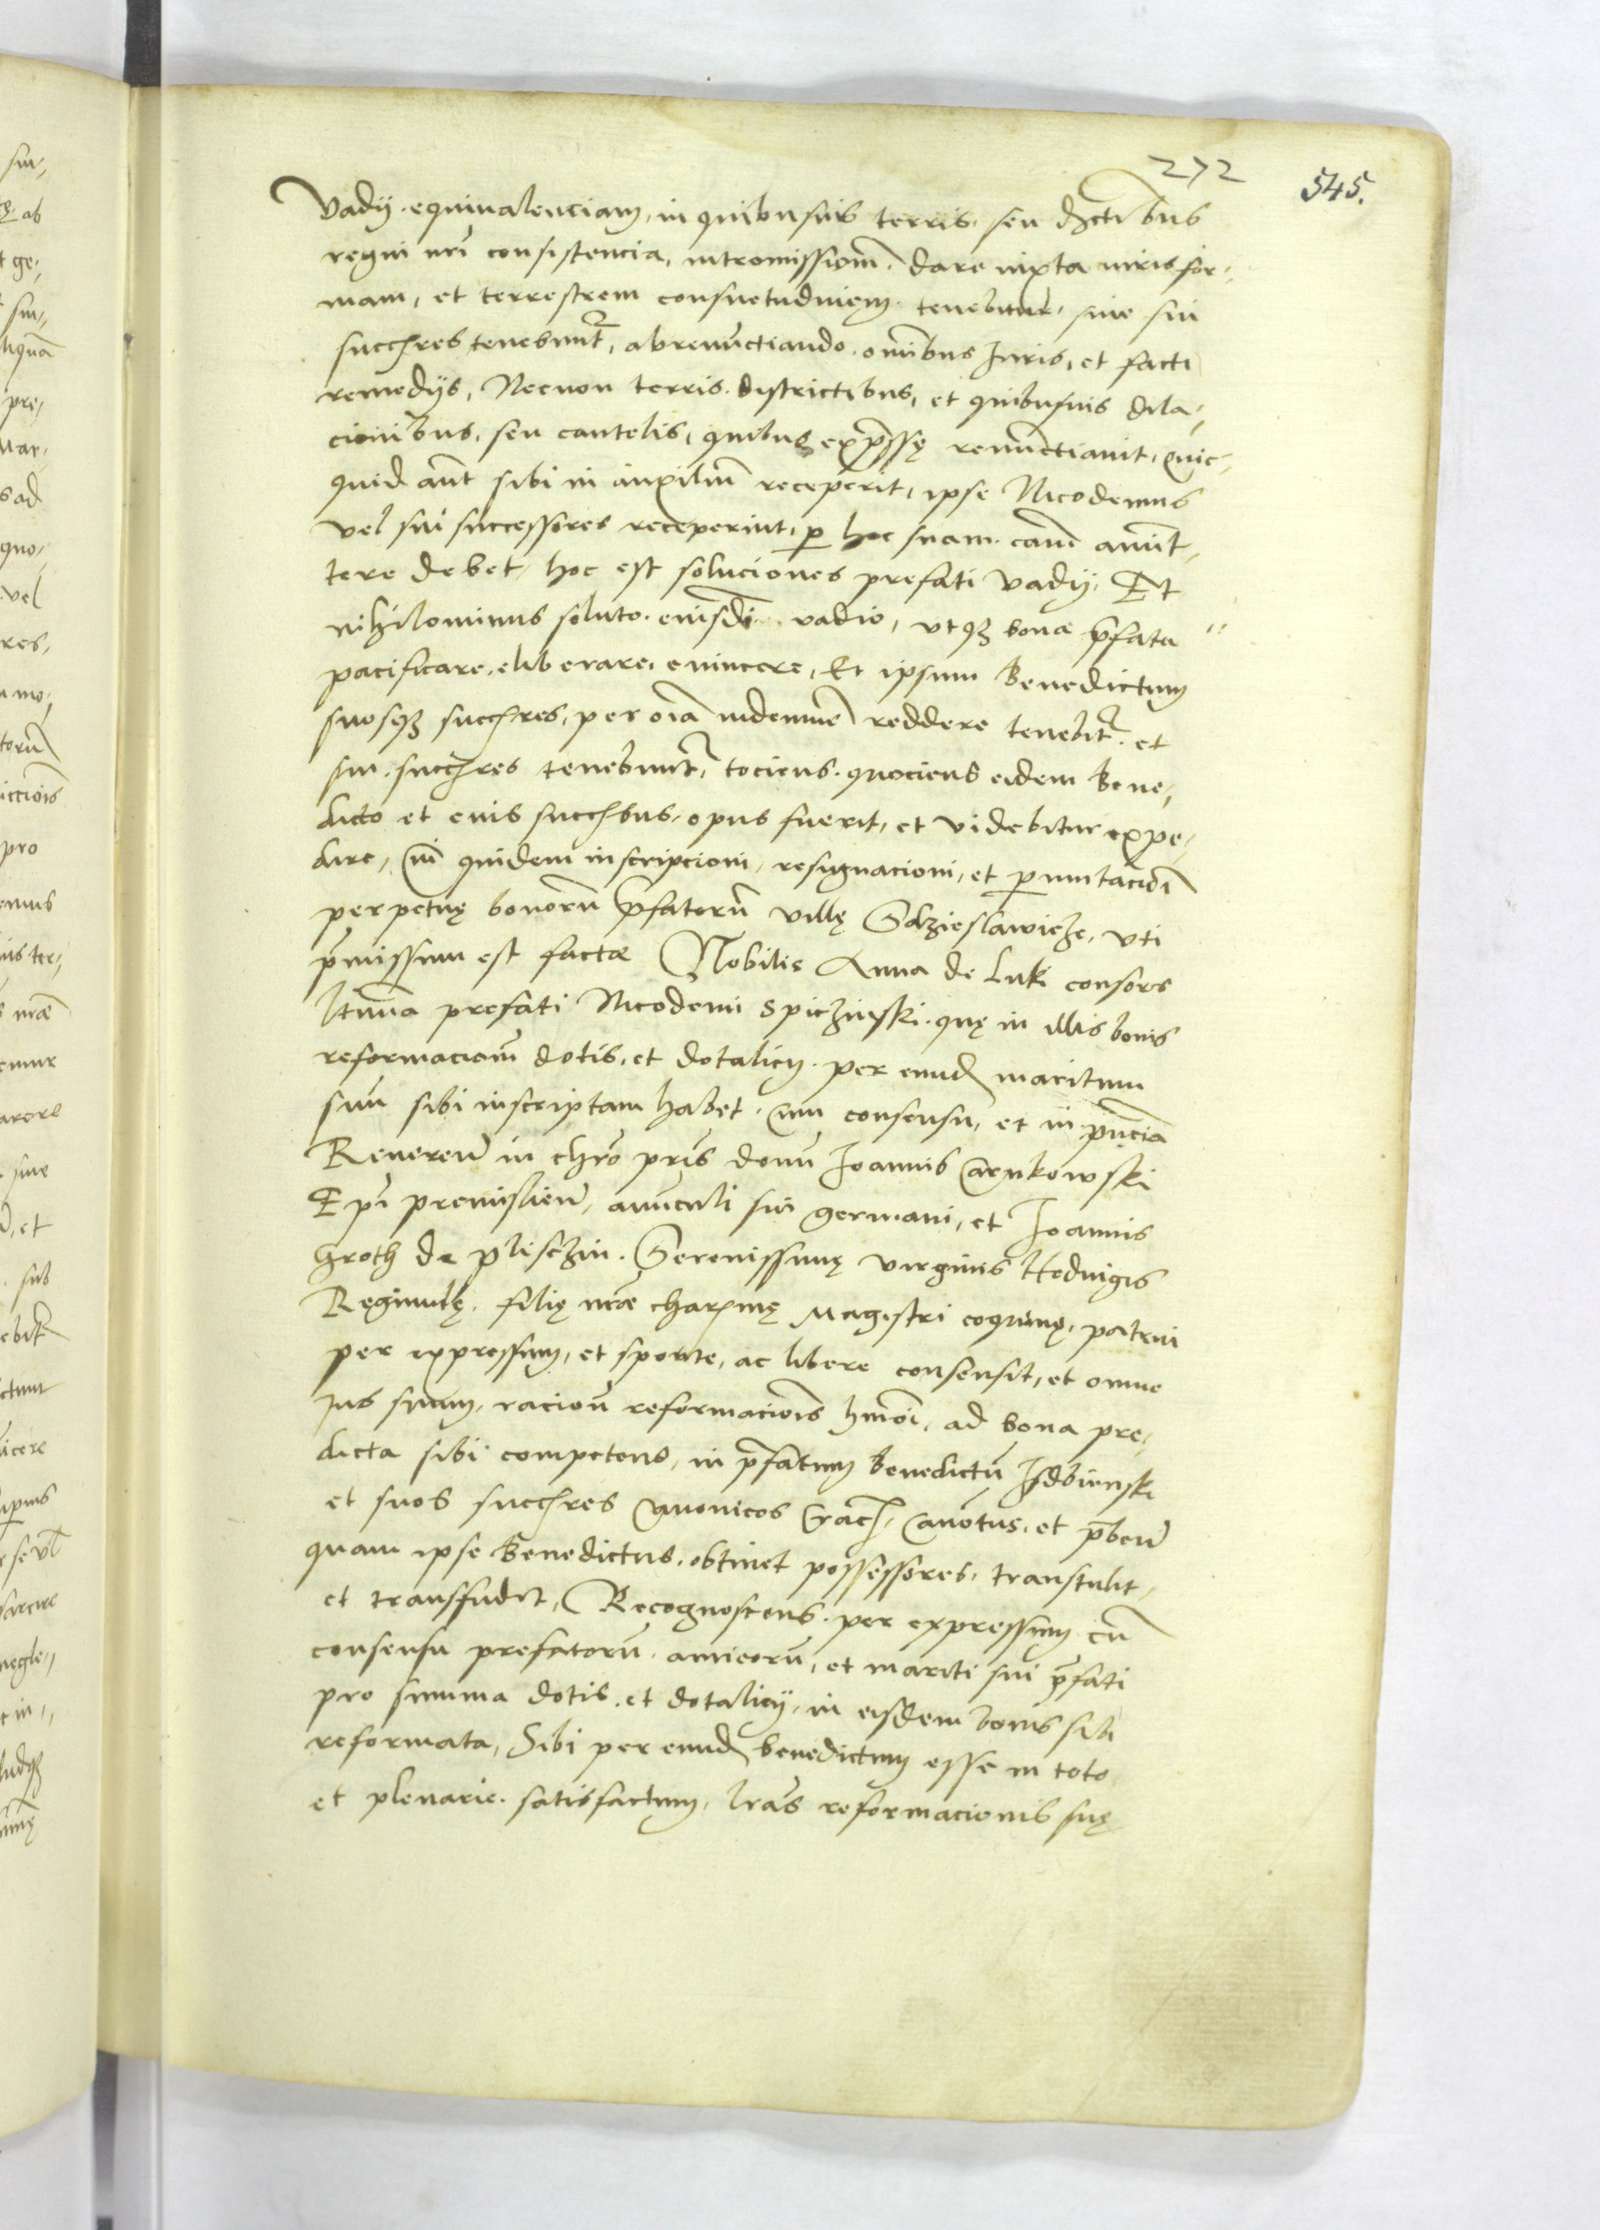 272 545.
Vadij equiualenciam, in quibusuis terris seu dictibus
regni nri consistencia, intromissionem dare iuxta iuris for-
mam, et terrestrem consuetudinem tenebitur, siue sui
succhres tenebuntr, abrenunctiando omibus Iuris, et facti
remedijs, Necnon terris districtibus, et quibusuis dila-
cionibus, seu cautelis, quibus expsse renunctiauit, quic-
quid aut sibi in auxiliu receperit, ipse Nicodemus
vel sui successores receperint, p hoc suam cam amit-
tere debet, hoc est soluciones prefati vadij, Et
nihilominus soluto eiusdi vadio, vtq3 bona pfata
pacificare, eliberare, euincere, Et ipsum Benedictum
suosq3 succhres, per oia indemne reddere tenebitr, et
sui succhres tenebuntr, tociens quociens eidem Bene-
dicto et eius succhbus, opus fuerit, et videbitur expe-
dire, Cui quidem inscripcioni, resignacioni, et pmutacioi
perpetuę bonoru pfatoru villę Sdzieslawicze, vti
pmissum est factæ Nobilis Anna de Luki consors
ltima prefati Nicodemi Spiczinski, quę in illis bonis
reformacioem dotis, et dotalicij per eund maritum
suu sibi inscriptam habet, cum consensu, et in pncia
Reueren in chro pris domi Ioannis Carnkowski
Epi premislien, auunculi sui germani, et Ioannis
Groth de pliszczin Serenissimę virginis Hedvigis
Regimulę, filię nræ charmę Magistri coquinę, patrui
per expressum, et sponte, ac libere consensit, et omne
Ius suum, racione reformaciois hmoi, ad bona pre-
dicta sibi competens, in pfatum Benedictu Isdbienski
et suos succhres Canonicos Crach, Canotus, et pben
quam ipse Benedictus, obtinet possessores, transtulit,
et transfudit, Recognoscens per expressum cu
consensu prefatoru amicoru, et mariti sui pfati
pro summa dotis, et dotalicij, in eisdem bonis sibi
reformata, Sibi per eund benedictum esse in toto
et plenarie satisfactum, lras reformacionis suę